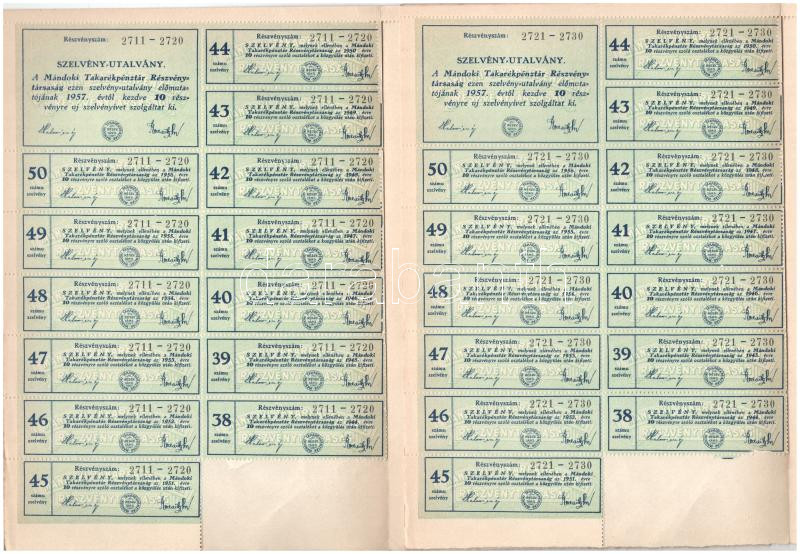 Részvényszám: 2711 – 2720
SZELVÉNY-UTALVÁNY.
A Mándoki Takarékpénztár Részvény-
társaság ezen szelvény-utalvány előmuta-
tójának 1957. évtől kezdve 10 rész-
vényre uj szelvényivet szolgáltat ki.
50
számu
szelvény
Részvényszám: 2711 – 2720
SZELVÉNY, melynek ellenében a Mándoki
Takarékpénztár Részvénytársaság az
10 részvényre szóló osztalékot a közgyülés után kifizeti.
49
számu
szelvény
Részvényszám: 2711 – 2720
SZELVÉNY, melynek ellenében a Mándoki
Takarékpénztár Részvénytársaság az
10 részvényre szóló osztalékot a közgyülés után kifizeti.
48
számu
szelvény
Részvényszám: 2711 – 2720
SZELVÉNY, melynek ellenében a Mándoki
Takarékpénztár Részvénytársaság az 1954. évre
10 részvényre szóló osztalékot a közgyülés után kifizeti.
47
számu
szelvény
Részvényszám: 2711 – 2720
SZELVÉNY, melynek ellenében a Mándoki
Takarékpénztár Részvénytársaság az 1953. évre
10 részvényre szóló osztalékot a közgyülés után kifizeti.
46
számu
szelvény
Részvényszám: 2711 – 2720
SZELVÉNY, melynek ellenében a Mándoki
Takarékpénztár Részvénytársaság az 1952. évre
10 részvényre szóló osztalékot a közgyülés után kifizeti.
45
számu
szelvény
Részvényszám: 2711 – 2720
SZELVÉNY, melynek ellenében a Mándoki
Takarékpénztár Részvénytársaság az 1951. évre
10 részvényre szóló osztalékot a közgyülés után kifizeti.
44
számu
szelvény
Részvényszám: 2711 – 2720
SZELVÉNY, melynek ellenében a Mándoki
Takarékpénztár Részvénytársaság az 1950. évre
10 részvényre szóló osztalékot a közgyülés után kifizeti.
43
számu
szelvény
Részvényszám: 2711 – 2720
SZELVÉNY, melynek ellenében a Mándoki
Takarékpénztár Részvénytársaság az 1949. évre
10 részvényre szóló osztalékot a közgyülés után kifizeti.
42
számu
szelvény
Részvényszám: 2711 – 2720
SZELVÉNY, melynek ellenében a Mándoki
Takarékpénztár Részvénytársaság az 1948. évre
10 részvényre szóló osztalékot a közgyülés után kifizeti.
41
számu
szelvény
Részvényszám: 2711 – 2720
SZELVÉNY, melynek ellenében a Mándoki
Takarékpénztár Részvénytársaság az 1947. évre
10 részvényre szóló osztalékot a közgyülés után kifizeti.
40
számu
szelvény
Részvényszám: 2711 – 2720
SZELVÉNY, melynek ellenében a Mándoki
Takarékpénztár Részvénytársaság az 1946. évre
10 részvényre szóló osztalékot a közgyülés után kifizeti.
39
számu
szelvény
Részvényszám: 2711 – 2720
SZELVÉNY, melynek ellenében a Mándoki
Takarékpénztár Részvénytársaság az 1945. évre
10 részvényre szóló osztalékot a közgyülés után kifizeti.
38
számu
szelvény
Részvényszám: 2711 – 2720
SZELVÉNY, melynek ellenében a Mándoki
Takarékpénztár Részvénytársaság az 1944. évre
10 részvényre szóló osztalékot a közgyülés után kifizeti.
Részvényszám: 2721 – 2730
SZELVÉNY-UTALVÁNY.
A Mándoki Takarékpénztár Részvény-
társaság ezen szelvény-utalvány előmuta-
tójának 1957. évtől kezdve 10 rész-
vényre uj szelvényivet szolgáltat ki.
50
számu
szelvény
Részvényszám: 2721 – 2730
SZELVÉNY, melynek ellenében a Mándoki
Takarékpénztár Részvénytársaság az 1956. évre
10 részvényre szóló osztalékot a közgyülés után kifizeti.
49
számu
szelvény
Részvényszám: 2721 – 2730
SZELVÉNY, melynek ellenében a Mándoki
Takarékpénztár Részvénytársaság az 1955. évre
10 részvényre szóló osztalékot a közgyülés után kifizeti.
48
számu
szelvény
Részvényszám: 2721 – 2730
SZELVÉNY, melynek ellenében a Mándoki
Takarékpénztár Részvénytársaság az 1954. évre
10 részvényre szóló osztalékot a közgyülés után kifizeti.
47
számu
szelvény
Részvényszám: 2721 – 2730
SZELVÉNY, melynek ellenében a Mándoki
Takarékpénztár Részvénytársaság az 1953. évre
10 részvényre szóló osztalékot a közgyülés után kifizeti.
46
számu
szelvény
Részvényszám: 2721 – 2730
SZELVÉNY, melynek ellenében a Mándoki
Takarékpénztár Részvénytársaság az 1952. évre
10 részvényre szóló osztalékot a közgyülés után kifizeti.
45
számu
szelvény
Részvényszám: 2721 – 2730
SZELVÉNY, melynek ellenében a Mándoki
Takarékpénztár Részvénytársaság az 1951. évre
10 részvényre szóló osztalékot a közgyülés után kifizeti.
44
számu
szelvény
Részvényszám: 2721 – 2730
SZELVÉNY, melynek ellenében a Mándoki
Takarékpénztár Részvénytársaság az 1950. évre
10 részvényre szóló osztalékot a közgyülés után kifizeti.
43
számu
szelvény
Részvényszám: 2721 – 2730
SZELVÉNY, melynek ellenében a Mándoki
Takarékpénztár Részvénytársaság az 1949. évre
10 részvényre szóló osztalékot a közgyülés után kifizeti.
42
számu
szelvény
Részvényszám: 2721 – 2730
SZELVÉNY, melynek ellenében a Mándoki
Takarékpénztár Részvénytársaság az 1948. évre
10 részvényre szóló osztalékot a közgyülés után kifizeti.
41
számu
szelvény
Részvényszám: 2721 – 2730
SZELVÉNY, melynek ellenében a Mándoki
Takarékpénztár Részvénytársaság az 1947. évre
10 részvényre szóló osztalékot a közgyülés után kifizeti.
40
számu
szelvény
Részvényszám: 2721 – 2730
SZELVÉNY, melynek ellenében a Mándoki
Takarékpénztár Részvénytársaság az 1946. évre
10 részvényre szóló osztalékot a közgyülés után kifizeti.
39
számu
szelvény
Részvényszám: 2721 – 2730
SZELVÉNY, melynek ellenében a Mándoki
Takarékpénztár Részvénytársaság az 1945. évre
10 részvényre szóló osztalékot a közgyülés után kifizeti.
38
számu
szelvény
Részvényszám: 2721 – 2730
SZELVÉNY, melynek ellenében a Mándoki
Takarékpénztár Részvénytársaság az 1944. évre
10 részvényre szóló osztalékot a közgyülés után kifizeti.